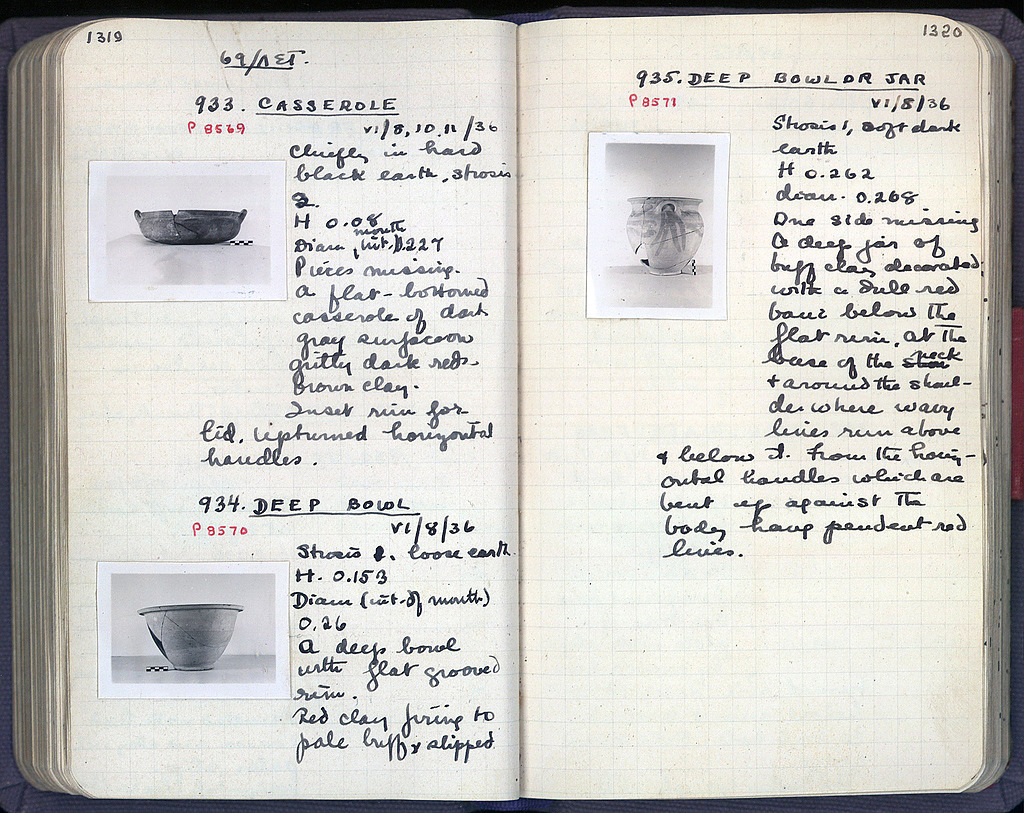 1319
69/ΛΕΤ.
933. CASSEROLE
P 8569
VI/8,10.11/36
Chiefly in hard
black earth, strosis
2.
H 0.08
mouth
Diam, int. 0.227
Pieces missing.
A flat-bottomed
casserole of dark
gray surface on
gritty dark red-
brown clay.
Inset rim for
lid. Upturned horizontal
handles.
934. DEEP BOWL
P 8570
VI/8/36
Strosis 1. loose earth
H. 0.153
Diam (int. of mouth)
0.26
A deep bowl
with flat grooved
rim.
Red clay firing to
pale buff & slipped
1320
935. DEEP BOWL OR JAR
P 8571
VI/8/36
Strosis 1, soft dark
earth
H 0.262
diam. 0.268
One side missing
A deep jar of
buff clay decorated
with a dull red
band below the
flat rim, at the
neck
base of the
& around the shoul-
der where wavy
lines run above
& below it. From the horiz-
ontal handles which are
bent up against the
body hang pendent red
lines.